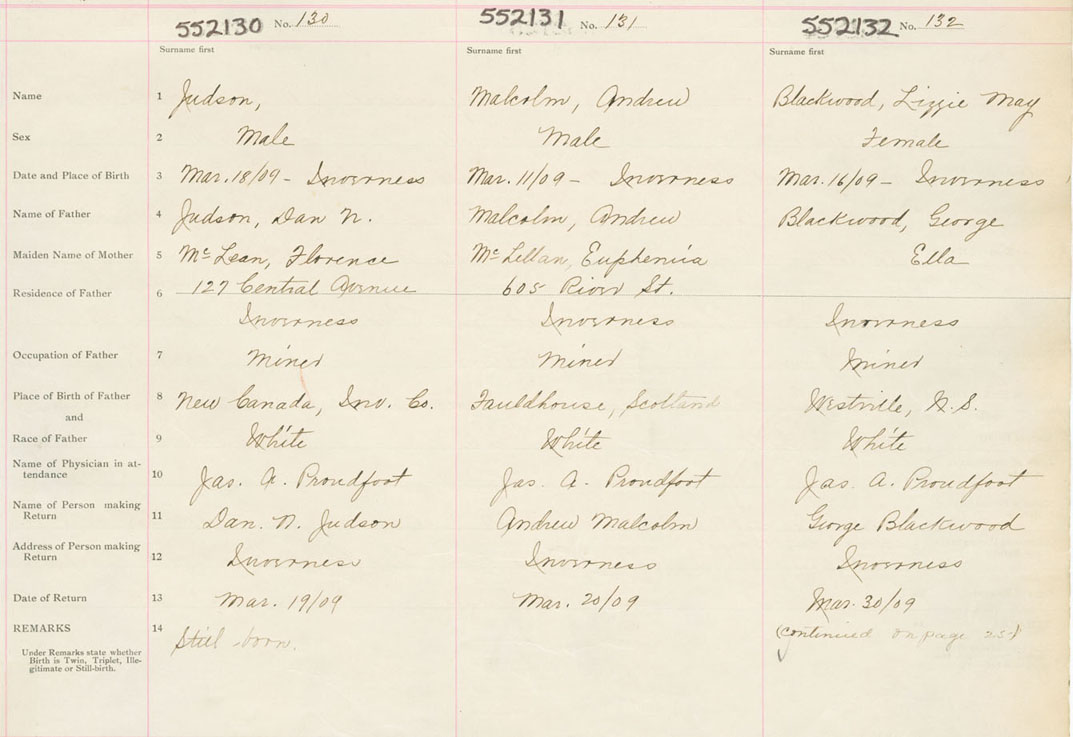 552130 No. 130 552131 No. 131 552132 No. 132
Surname first Surname first Surname first
Name 1 Judson, Malcolm, Andrew Blackwood, Lizzie May
Sex 2 Male Male Female
Date and Place of Birth 3 Mar. 18/09 - Inverness Mar. 11/09 - Inverness Mar. 16/09 - Inverness
Name of Father 4 Judson, Dan N. Malcolm, Andrew Blackwood, George
Maiden Name of Mother 5 McLean, Florence McLellan, Euphemia Ella
127 Central Avenue 605 River St.
Residence of Father 6
Inverness Inverness Inverness
Occupation of Father 7 Miner Miner Miner
Place of Birth of Father 8 New Canada, Inv. Co. Fauldhouse, Scotland Westville, N.S.
and
Race of Father 9 White White White
Name of Physician in at-
tendance 10 Jas. A. Proudfoot Jas. A. Proudfoot Jas. A. Proudfoot
Name of Person making
Return 11 Dan. N. Judson Andrew Malcolm George Blackwood
Address of Person making
Return 12 Inverness Inverness Inverness
Date of Return 13 Mar. 19/09 Mar. 20/09 Mar. 30/09
REMARKS 14 Still-born. (continued on page 251)
Under Remarks state whether
Birth is Twin, Triplet, Ille-
gitimate or Still-birth.